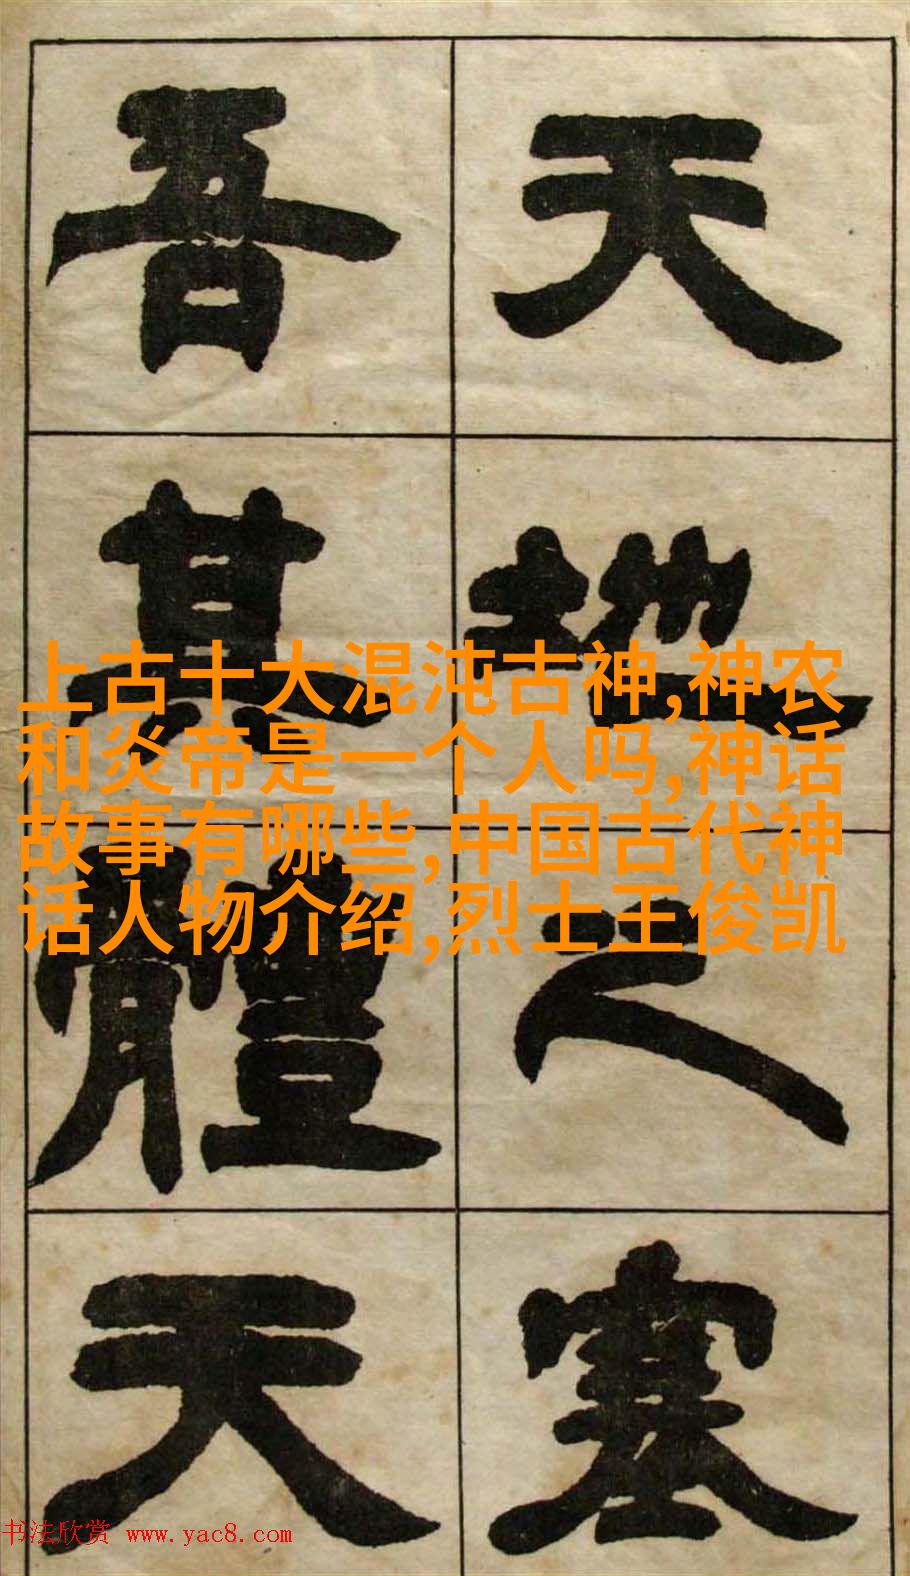 天地之塞
吾其體天
上古十大混沌古神,神农
和炎帝是一个人吗,神话
故事有哪些,中国古代神
话人物介绍,烈士王俊凯
书法欣赏 www.yac8.com